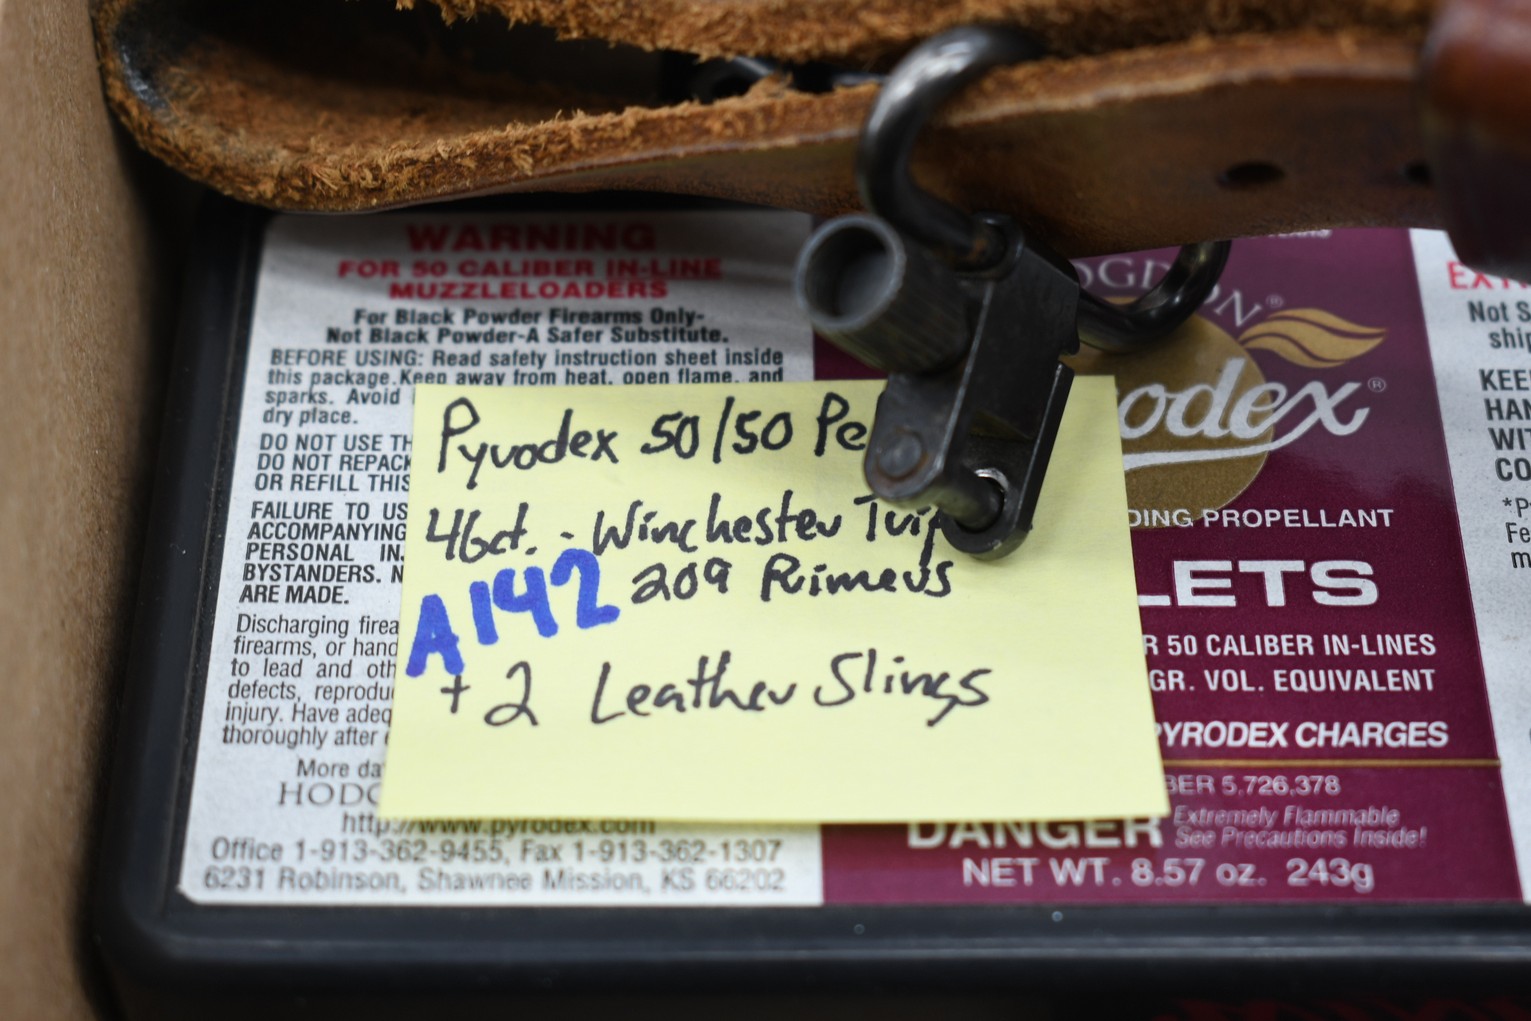 WARNING
FOR 50 CALIBER IN-LINE
MUZZLELOADERS
For Black Powder Firearms Only-
Not Black Powder-A Safer Substitute.
BEFORE USING: Read safety instruction sheet inside
this package. Keep away from heat, open flame, and
sparks. Avoid
dry place.
DO NOT USE TH
DO NOT REPACK
OR REFILL THIS
FAILURE TO US
ACCOMPANYING
PERSONAL IN
BYSTANDERS. N
ARE MADE.
Discharging firea
firearms, or hand
to lead and oth
defects, reprodu
injury. Have adeq
thoroughly after
More da
HODG
http://www.pyrodex.com
Office 1-913-362-9455, Fax 1-913-362-1307
6231 Robinson, Shawnee Mission, KS 66202
Pyrodex 50/50 Pe
46ct. - Winchester Trip
209 Primers
A142
+ 2 Leather Slings
OGDON®
odex®
DING PROPELLANT
LETS
R 50 CALIBER IN-LINES
GR. VOL. EQUIVALENT
PYRODEX CHARGES
BER 5,726,378
DANGER Extremely Flammable
See Precautions Inside!
NET WT. 8.57 oz. 243g
EXT
Not S
ship
KEE
HAN
WIT
CO
*P
Fe
m